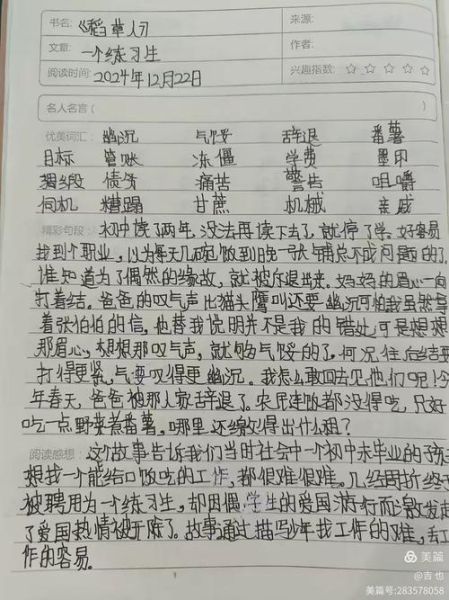 书名:《稻草人》 来源:
文章: 一个练习生 作者:
阅读时间: 2024年12月22日 兴趣指数: ☆ ☆ ☆ ☆ ☆
名人名言 ( )
优美词汇: 幽沉 气馁 辞退 番薯
目标 管账 冻僵 学费 墨印
绸缎 债务 痛苦 警告 咀嚼
伺机 糟蹋 甘蔗 机械 亲戚
初中读了两年,没法再读下去了,就停了学。好容易
精彩句段:
找到个职业,以为每天几碗饭到晚一张铺总不成问题的了,
谁知道为了偶然的缘故,就被斥退出来。妈妈的眉心一向
打着结。爸爸的叹气声比猫头鹰叫还要幽沉可怕我虽然带
着张伯伯的信,他替我说明并不是我的错处,可是想想
那眉心,想想那叹气声,就够气馁的了,何况往后结要
打得更紧,气要叹得更幽沉。我怎么敢回去见他们呢!今
年春天,爸爸被那人家辞退了。农民连饭都没得吃,只好
吃一点野菜煮番薯。哪里还缴得出什么租?
阅读感想: 这个故事告诉我们当时社会中一个初中未毕业的孩子
想找一个能给口饭吃的工作,都很难很难。几经周折终于
被聘用为一个练习生,却因偶学生的爱国游行而激发起
了爱国热情被开除了。故事通过描写少年找工作的难,丢工
作的容易。
美篇
@吉也
美篇号:283578058